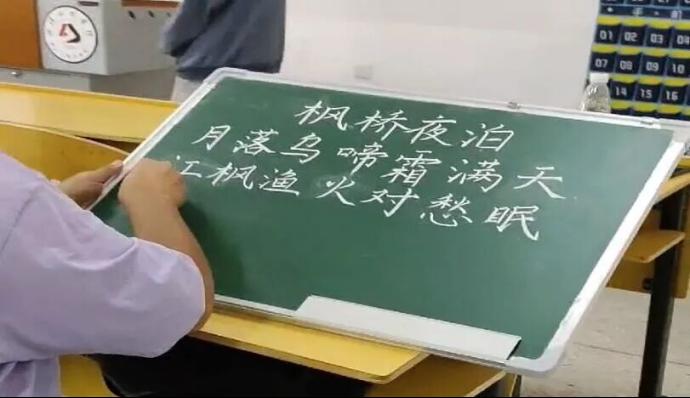 枫桥夜泊
月落乌啼霜满天
江枫渔火对愁眠
01
02
03
07
08
09
10
13
14
15
16